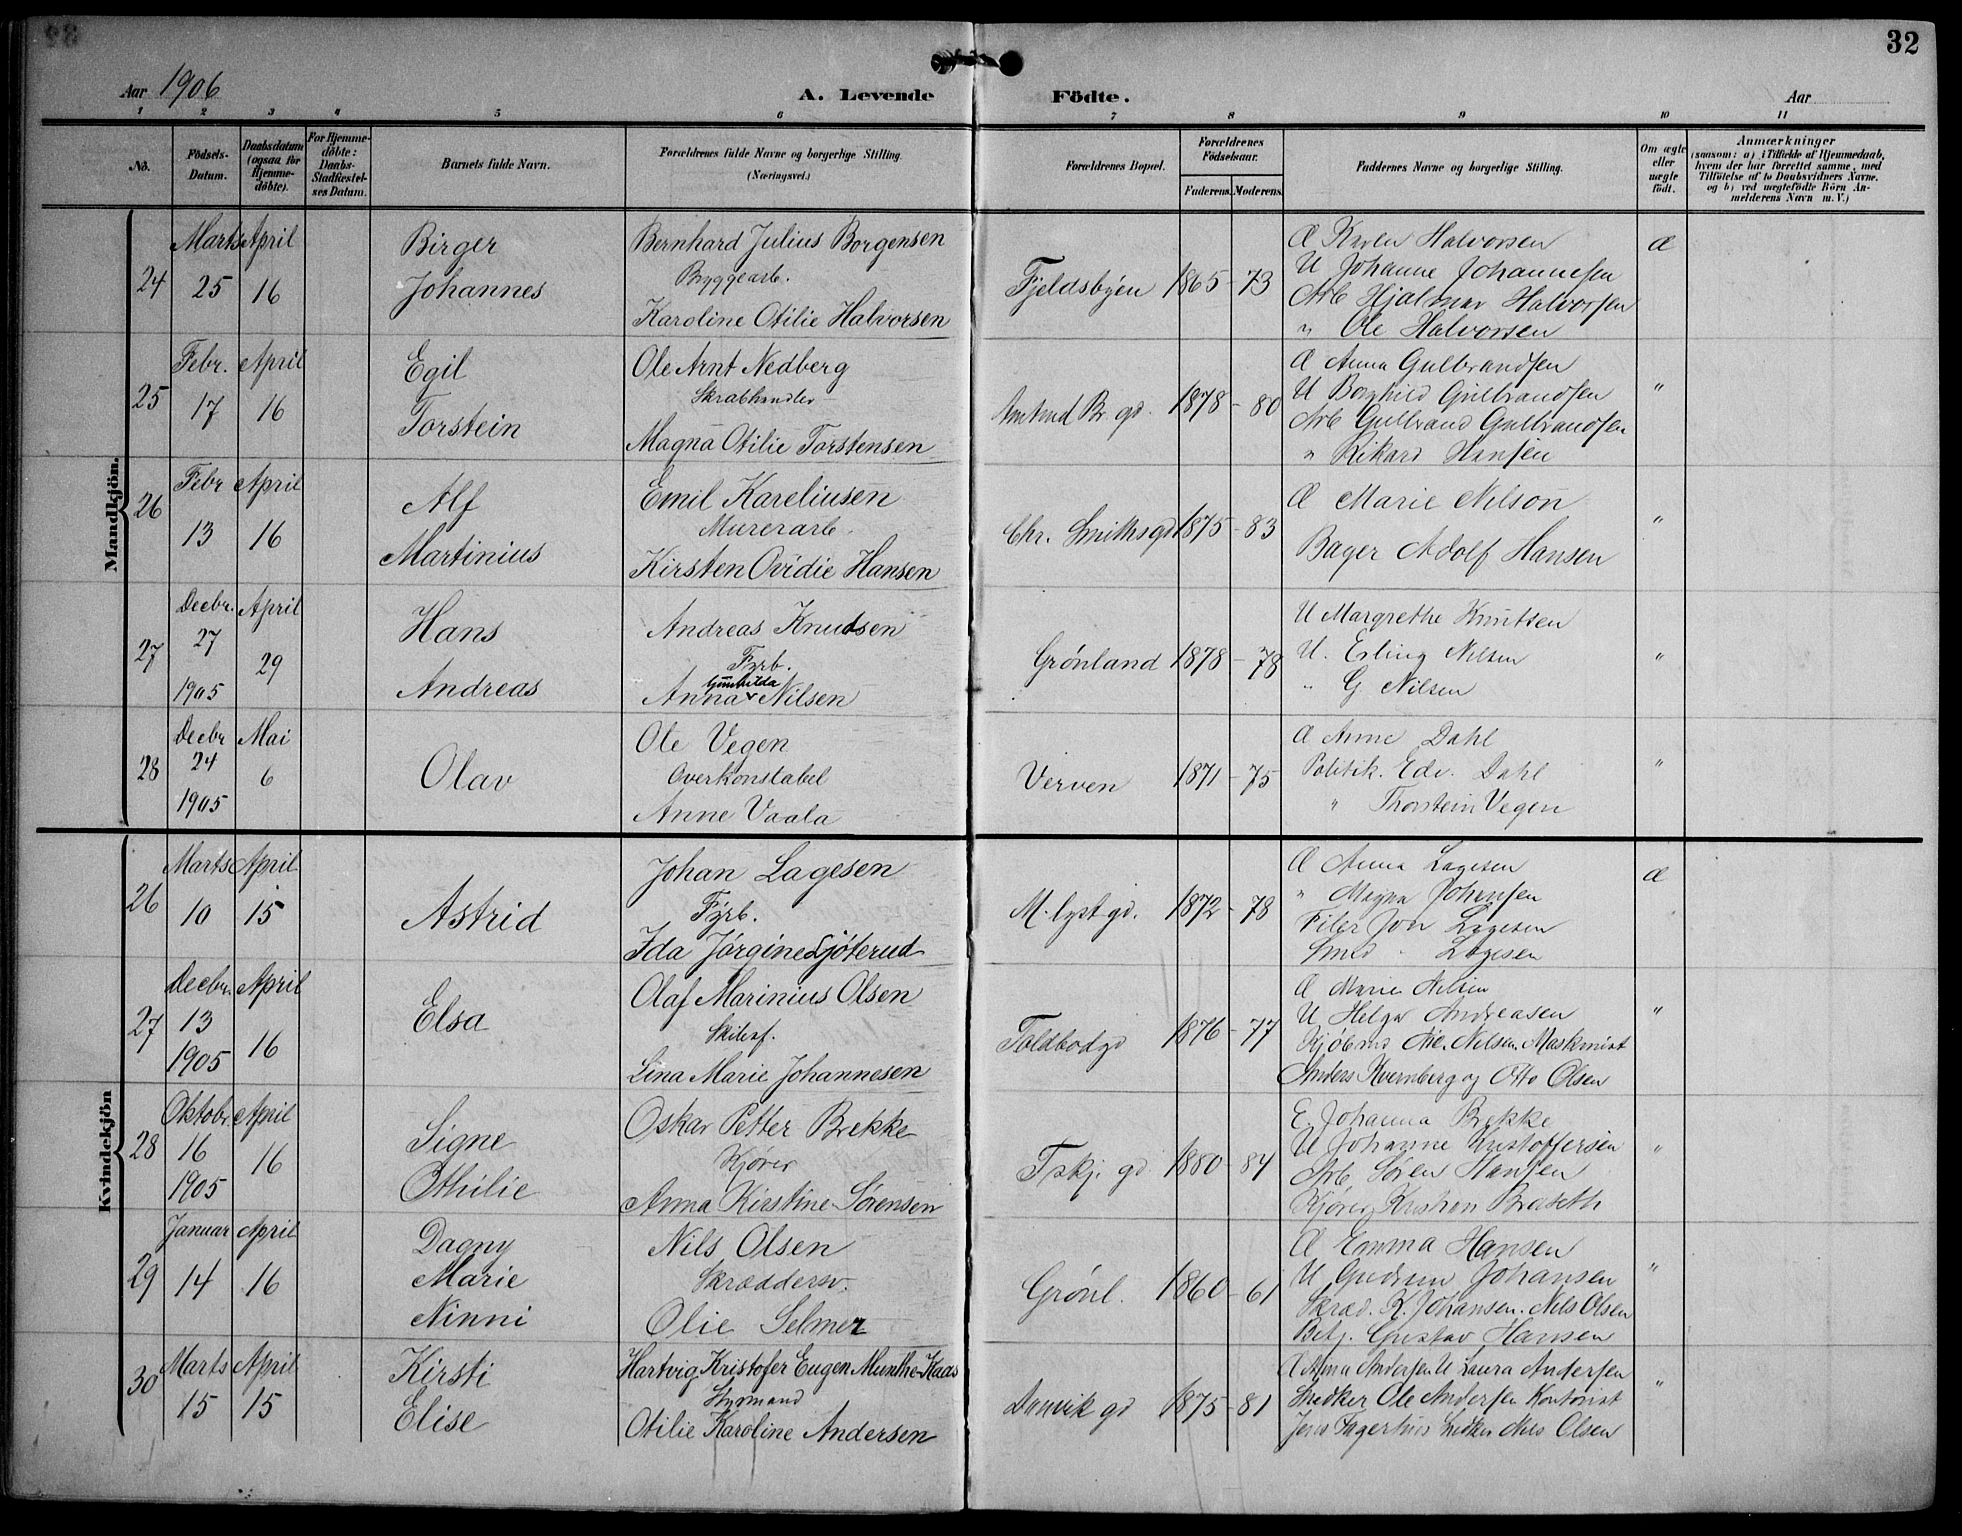 32
Aar 1906
A. Levende
Födte.
Aar
1 2 3 4 5 6 7 8 9 10 11
Nö.
Födsels-
Datum.
Daabsdatum
(ogsaa for
Hjemme-
döbte).
For Hjemme-
döbte:
Daabs-
Stadfæstel-
ses Datum.
Barnets fulde Navn.
Forældrenes fulde Navne og borgerlige Stilling.
(Næringsvei.)
Forældrenes Bopæl.
Forældrenes
Födselsaar.
Faderens. Moderens.
Faddernes Navne og borgerlige Stilling.
Om ægte
eller
uægte
födt.
Anmærkninger
(saasom: a) i Tilfælde af Hjemmedaab,
hvem der har forrettet samme, med
Tilföielse af to Daabsvidners Navne,
og b) ved uægtefödte Börn An-
melderens Navn m. V.)
Mandkjön.
24
Marts
25
April
16
Birger
Johannes
Bernhard Julius Borgensen
Byggearb.
Karoline Otilie Halvorsen
Fjeldsbyen 1865 - 73
Æ Karen Halvorsen
U Johanne Johannesen
Arb Hjalmar Halvorsen
" Ole Halvorsen
æ
25
Febr.
17
April
16
Egil
Torstein
Ole Arnt Nedberg
Skrabhandler
Magna Otilie Torstensen
Br gd. 1878 - 80
Æ Anna Gulbrandsen
U Borghild Gulbrandsen
Arb Gulbrand Gulbrandsen
" Rikard Hansen
"
26
Febr
13
April
16
Alf
Martinius
Emil Kareliusen
Murerarb.
Kirsten Ovidie Hansen
Chr. Smithsgd 1875 - 83
Æ Marie Nilson
Bager Adolf Hansen
"
27
Decbr.
27
1905
April
29
Hans
Andreas
Andreas Knudsen
Fyrb.
Gunhilda
Anna Nilsen
Grønland 1878 - 78
U Margrethe Knutsen
U. Erling Nilsen
" G Nilsen
"
28
Decbr
24
1905
Mai
6
Olav
Ole Vegen
Overkonstabel
Anne Vaala
Verven 1871 - 75
Æ Anne Dahl
Politik. Edv. Dahl
" Thorstein Vegen
"
Kvindekjön
26
Marts
10
April
15
Astrid
Johan Lagesen
Fyrb.
Ida Jørgine Ljøterud
M.lyst gd. 1872 - 78
Æ Anna Lagesen
" Magna Johansen
Filer Jon Lagesen
Smed " Lagesen
æ
27
Decbr.
13
1905
April
16
Elsa
Olaf Marinius Olsen
Skilerf.
Lina Marie Johannesen
Toldbodgd 1876 - 77
Æ Marie Nilsen
U Helga Andreasen
Kjøbmd Nilsen. Maskinist
Anders Kvernberg og Otto Olsen
"
28
Oktobr
16
1905
April
16
Signe
Othilie
Oskar Petter Brekke
Kjører
Anna Kirstine Sørensen
Tskj. gd. 1880 - 84
E. Johanna Brekke
U Johanne Kristoffersen
Arb Søren Hansen
Kjører Kristian Braseth
"
29
Januar
14
April
16
Dagny
Marie
Ninni
Nils Olsen
Skræddersv.
Olie Selmer
Grønl. 1860 - 61
Æ Emma Hansen
U Gudrun Johansen
Skræd. K. Johansen. Nils Olsen
Betj. Gustav Hansen
"
30
Marts
15
April
15
Kirsti
Elise
Hartvig Kristofer Eugen Munthe-Kaas
Styrmand
Otilie Karoline Andersen
Danvik gd 1875 - 81
Æ Anna Andersen U Laura Andersen
Snedker Ole Andersen Kontorist
Jens Fagertuns Snedker Nils Olsen
"